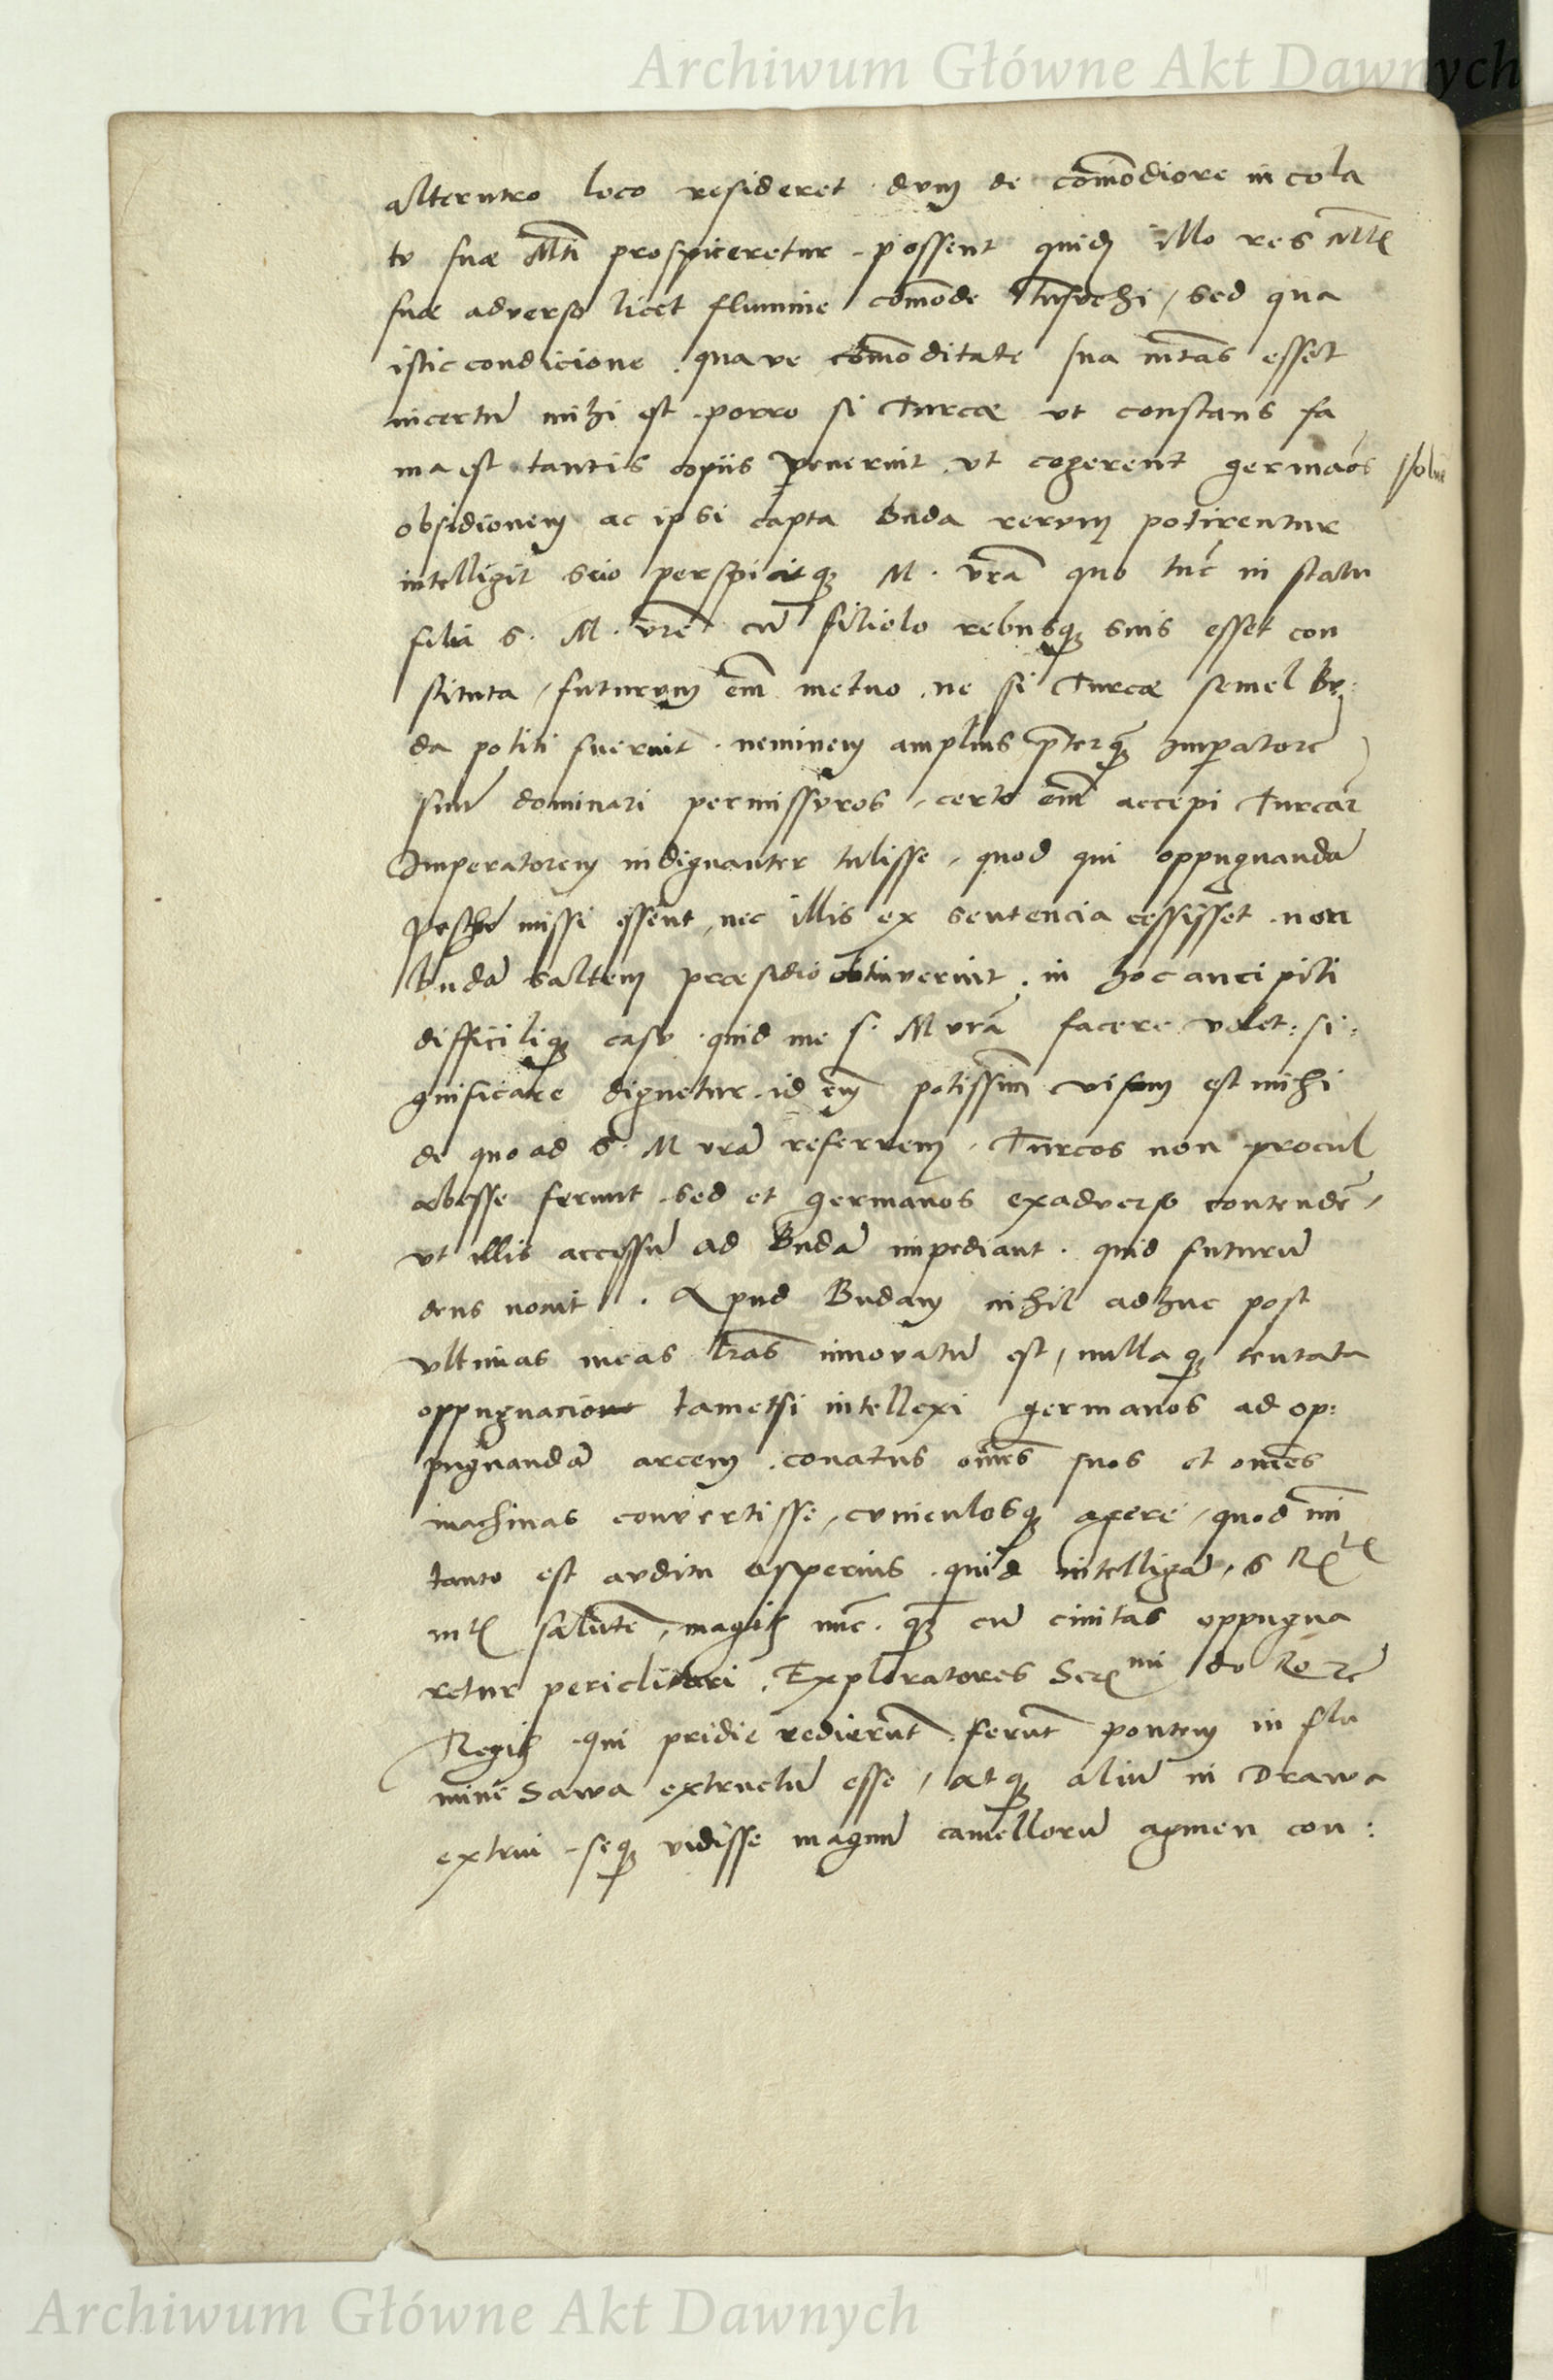 Archiwum Główne Akt Dawnych
alterutro loco resideret dum de com̄odiore incola
tu suæ Mti prospiceretur . possent quidē illo res Mtis
suæ adverso licet flumine com̄ode subvehi , sed qua
istic condicione . quave com̄oditate sua mtas esset
incertū mihi est . porro si Turcæ ut constans fa
ma est tantis copiis venerint ut cogerent germaōs solvere
obsidionem ac ipsi capta Buda rerum potirentur
intelligit scio perspicitq̨ M . vrā quo tūc in statu
filia S . M . vrē cū filiolo rebusq̨ suis esset con
stituta , futurum em̄ metuo ne si Turcæ semel Bu:
da potiti fuerint . neminem amplius p̄terq̨ Imperatorē
suū dominari permissuros , certo em̄ accepi Turcar̄
Imperatorem indignanter tulisse , quod qui oppugnandā
Pesthū missi essent , nec illis ex sentencia cessisset . non
budā saltem præsidio obtinuerint . in hoc ancipiti
difficiliq̨ casu . quid me S . M vrā facere velet : si:
gnificare dignetur . id em̄ potissim̄ visum est mihi
de quo ad S . M vrā referrem . Turcos non procul
abesse ferunt . sed et germanos exadverso contendē ,
ut illis accessū ad Budā impediant . quid futurū
deus novit . Apud Budam nihil adhuc post
ultimas meas lrās innovatū est , nullaq̨ tentata
oppugnacione tametsi intellexi germanos ad op:
pugnandā arcem . conatus om̄es suos et om̄es
machinas convertisse , cuniculosq̨ agere , quod mi
tanto est auditu asperius . quod intelligā , S Rgie
mtis salutē , magis nūc . q̨ cū civitas oppugna
retur periclitari . Exploratores Sermi do Ro
Regis . qui pridie redierūt . ferūt pontem in flu
mine Sawa extructū esse , atq̨ aliū in Drawa
extrui . seq̨ vidisse magnū camellorū agmen con :
Archiwum Główne Akt Dawnych